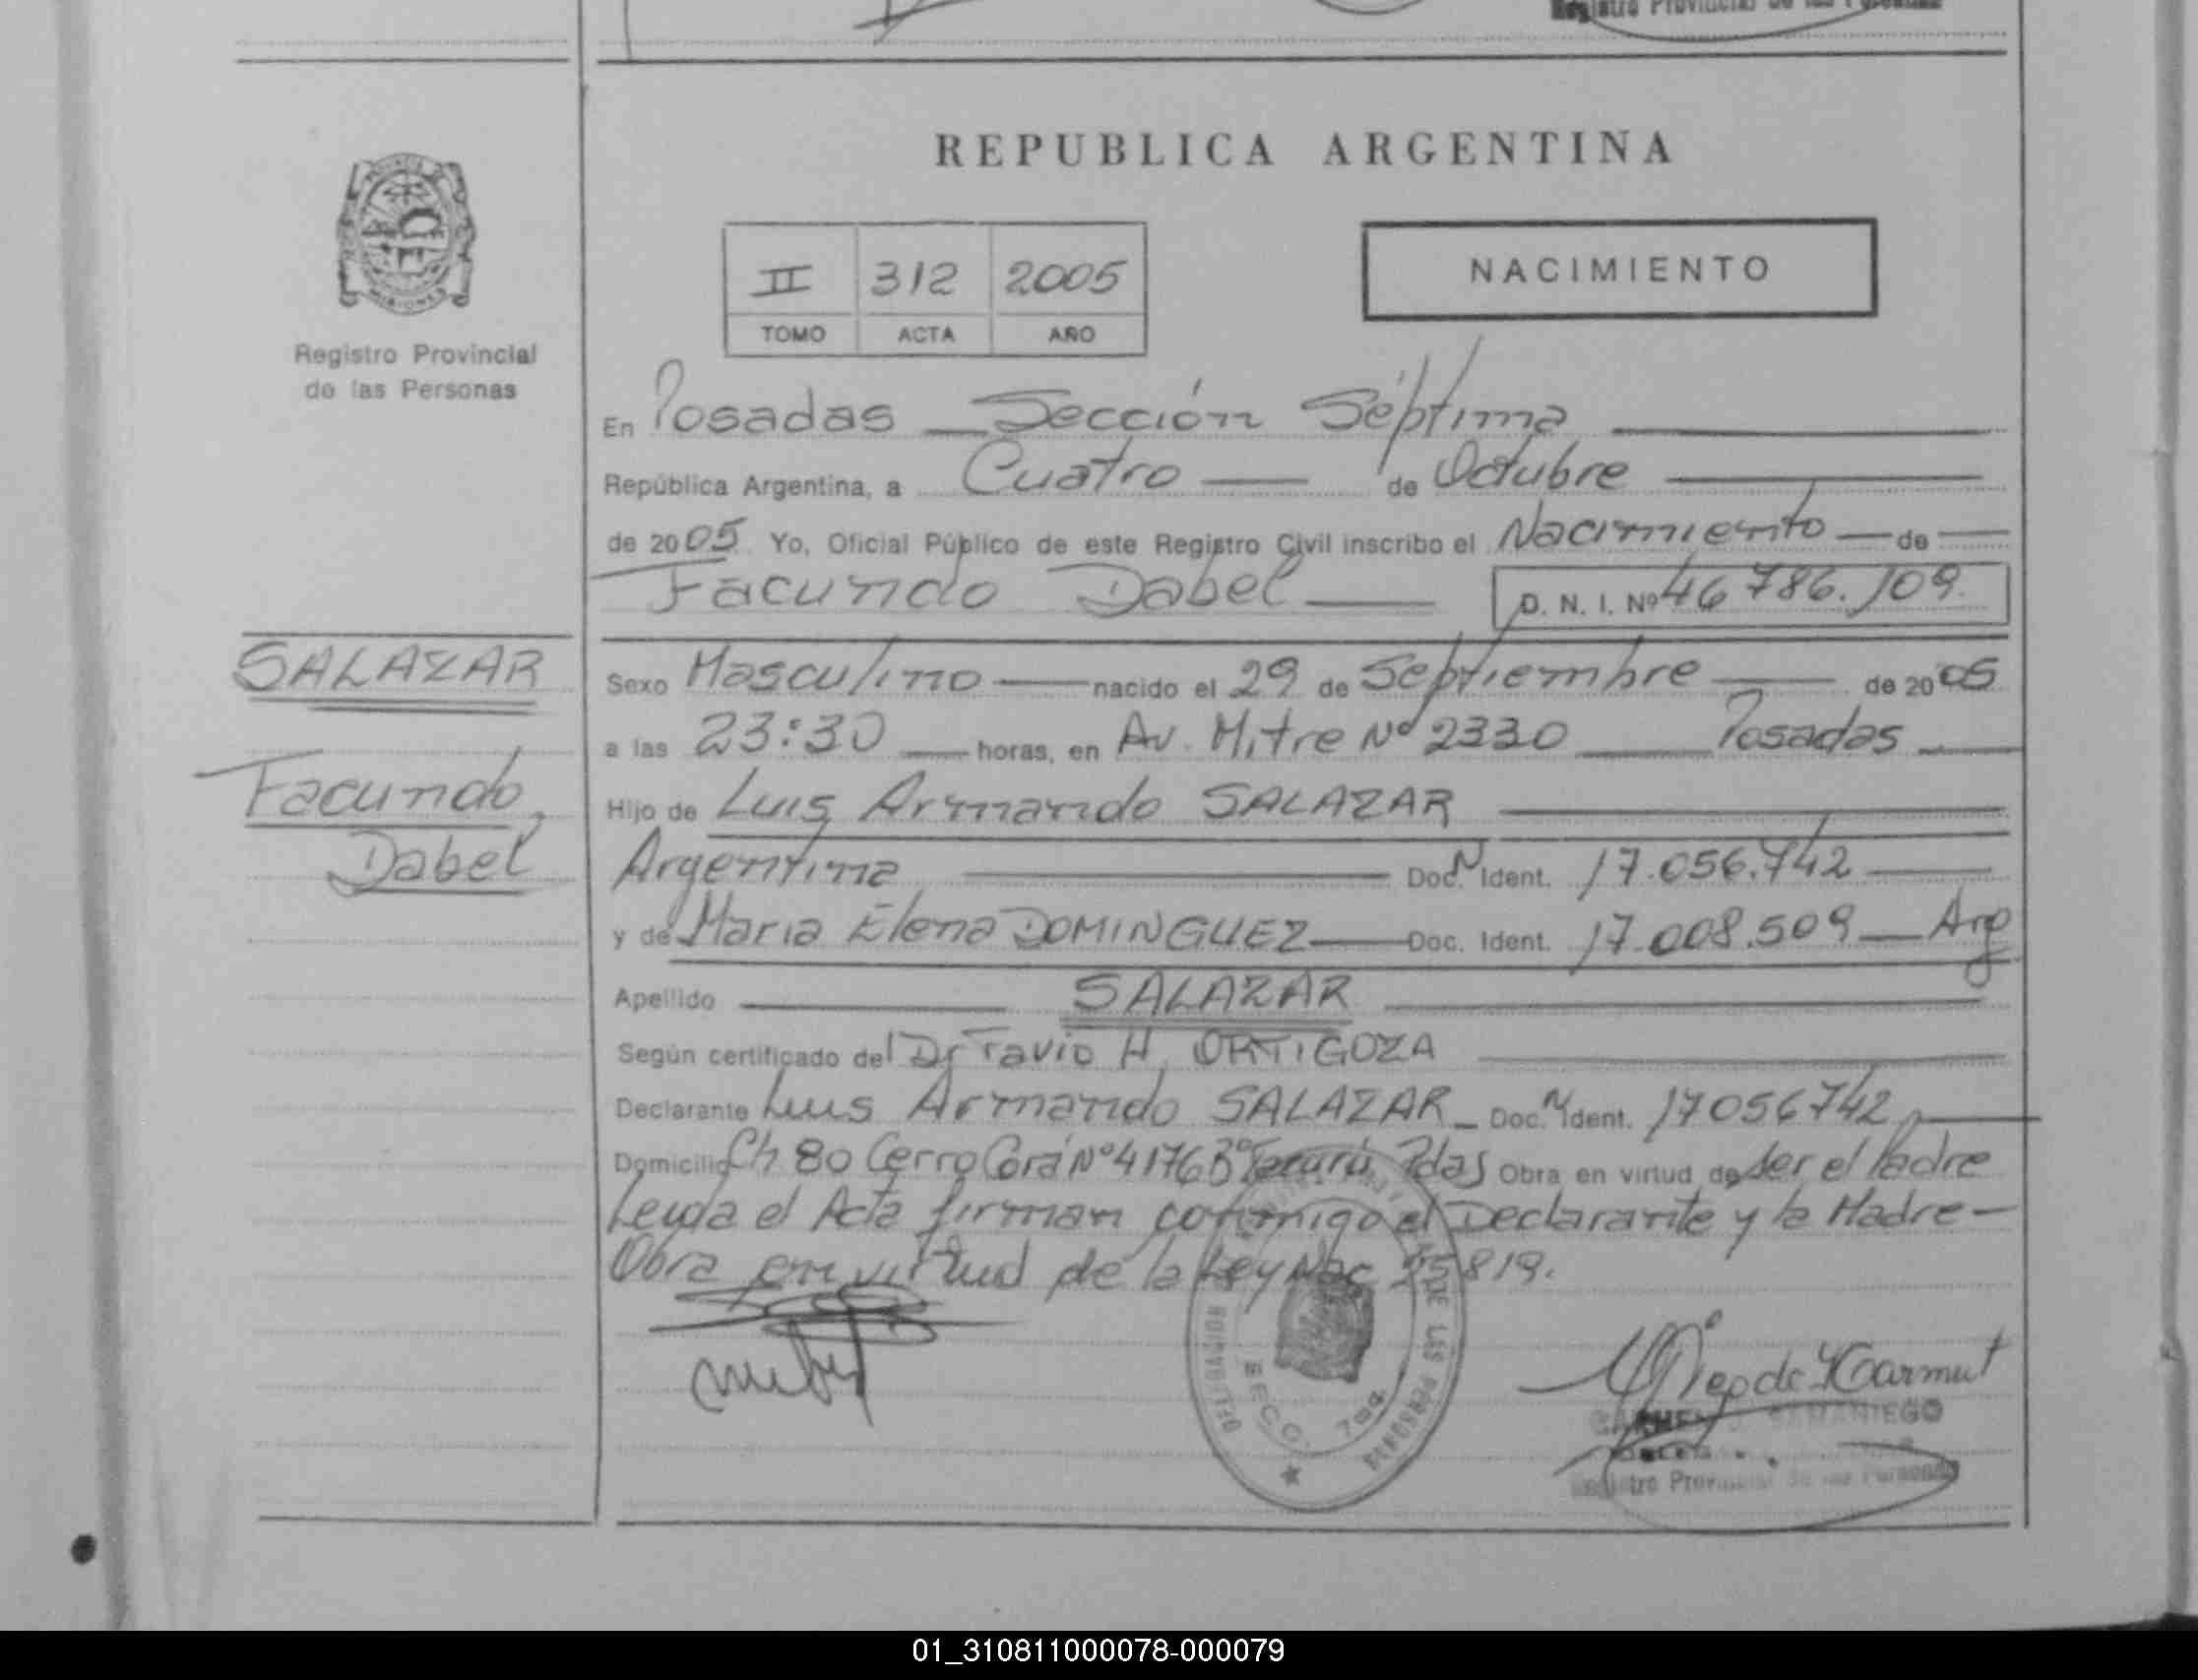 Registro Provincial de las Personas
REPUBLICA ARGENTINA
II 312 2005
TOMO ACTA AÑO
NACIMIENTO
Registro Provincial
de las Personas
En Posadas Sección Séptima
República Argentina, a Cuatro de Octubre
de 2005 Yo, Oficial Público de este Registro Civil inscribo el Nacimiento de
Facundo Dabel D. N. I. Nº 46786.109
SALAZAR
Facundo
Dabel
Sexo Masculino nacido el 29 de Septiembre de 2005
a las 23:30 horas, en Av. Mitre Nº 2330 Posadas
Hijo de Luis Armando SALAZAR
Argentina Doc. N Ident. 17.056.742
y de Maria Elena DOMINGUEZ Doc. Ident. 17.008.509 Arg
Apellido SALAZAR
Según certificado del Dr Favio H. ORTIGOZA
Declarante Luis Armando SALAZAR Doc. N Ident. 17056742
Domicilio Ch 80 Cerro Corá Nº 4176 Bº Pdas Obra en virtud de ser el Padre
Leyda el Acta firman conmigo el Declarante y la Madre
Obra en virtud de la Ley Nac 25819.
DELEGACION DE LAS PERSONAS
SECC. 7ma
CARMEN SAMANIEGO
Registro Provincial de las Personas
01_310811000078-000079